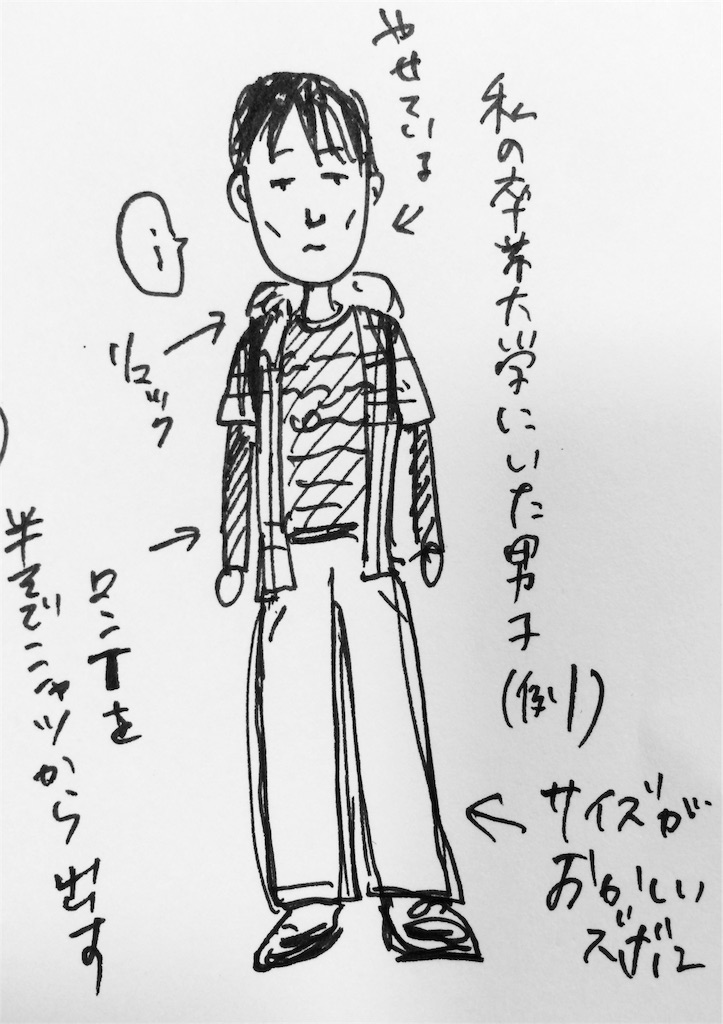 私の卒業大学にいた男子(例)
やせている
…
リュック
ロンTを
半そでシャツから出す
サイズが
おかしい
ズボン